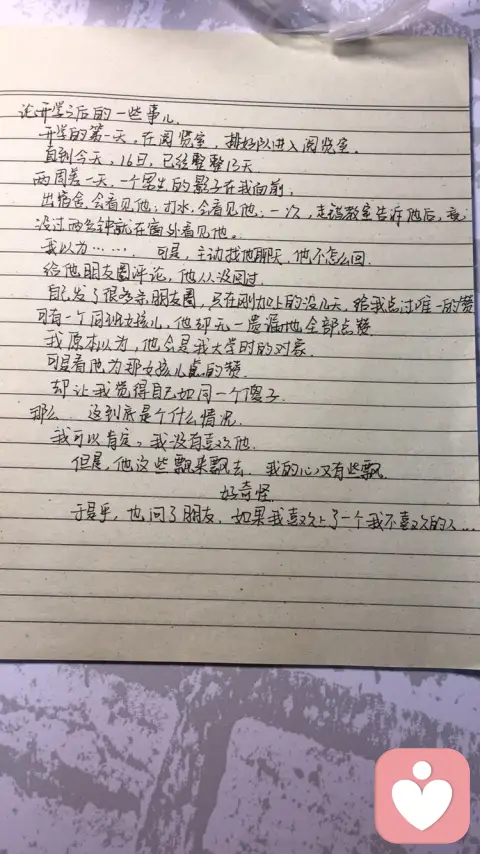 论开学之后的一些事儿.
开学的第一天,在阅览室,排好队进入阅览室.
直到今天,16日,已经整整13天
两周差一天,一个男生的影子在我面前;
出宿舍,会看见他;打水,会看见他;一次,走错教室告诉他后,竟
没过两分钟就在窗外看见他。
我以为……. 可是,主动找他聊天,他不怎么回.
给他朋友圈评论,他从没回过.
自己发了很多条朋友圈,只在刚加上的没几天,给我点过唯一的赞
可有一个同班女孩儿,他却无一遗漏地全部点赞
我原本以为,他会是我大学时的对象.
可是看他为那女孩儿点的赞.
却让我觉得自己如同一个傻子.
那么 这到底是个什么情况.
我可以肯定,我没有喜欢他.
但是,他这些飘来飘去,我的心又有些飘.
好奇怪.
于是乎,也问了朋友,如果我喜欢上了一个我不喜欢的人...